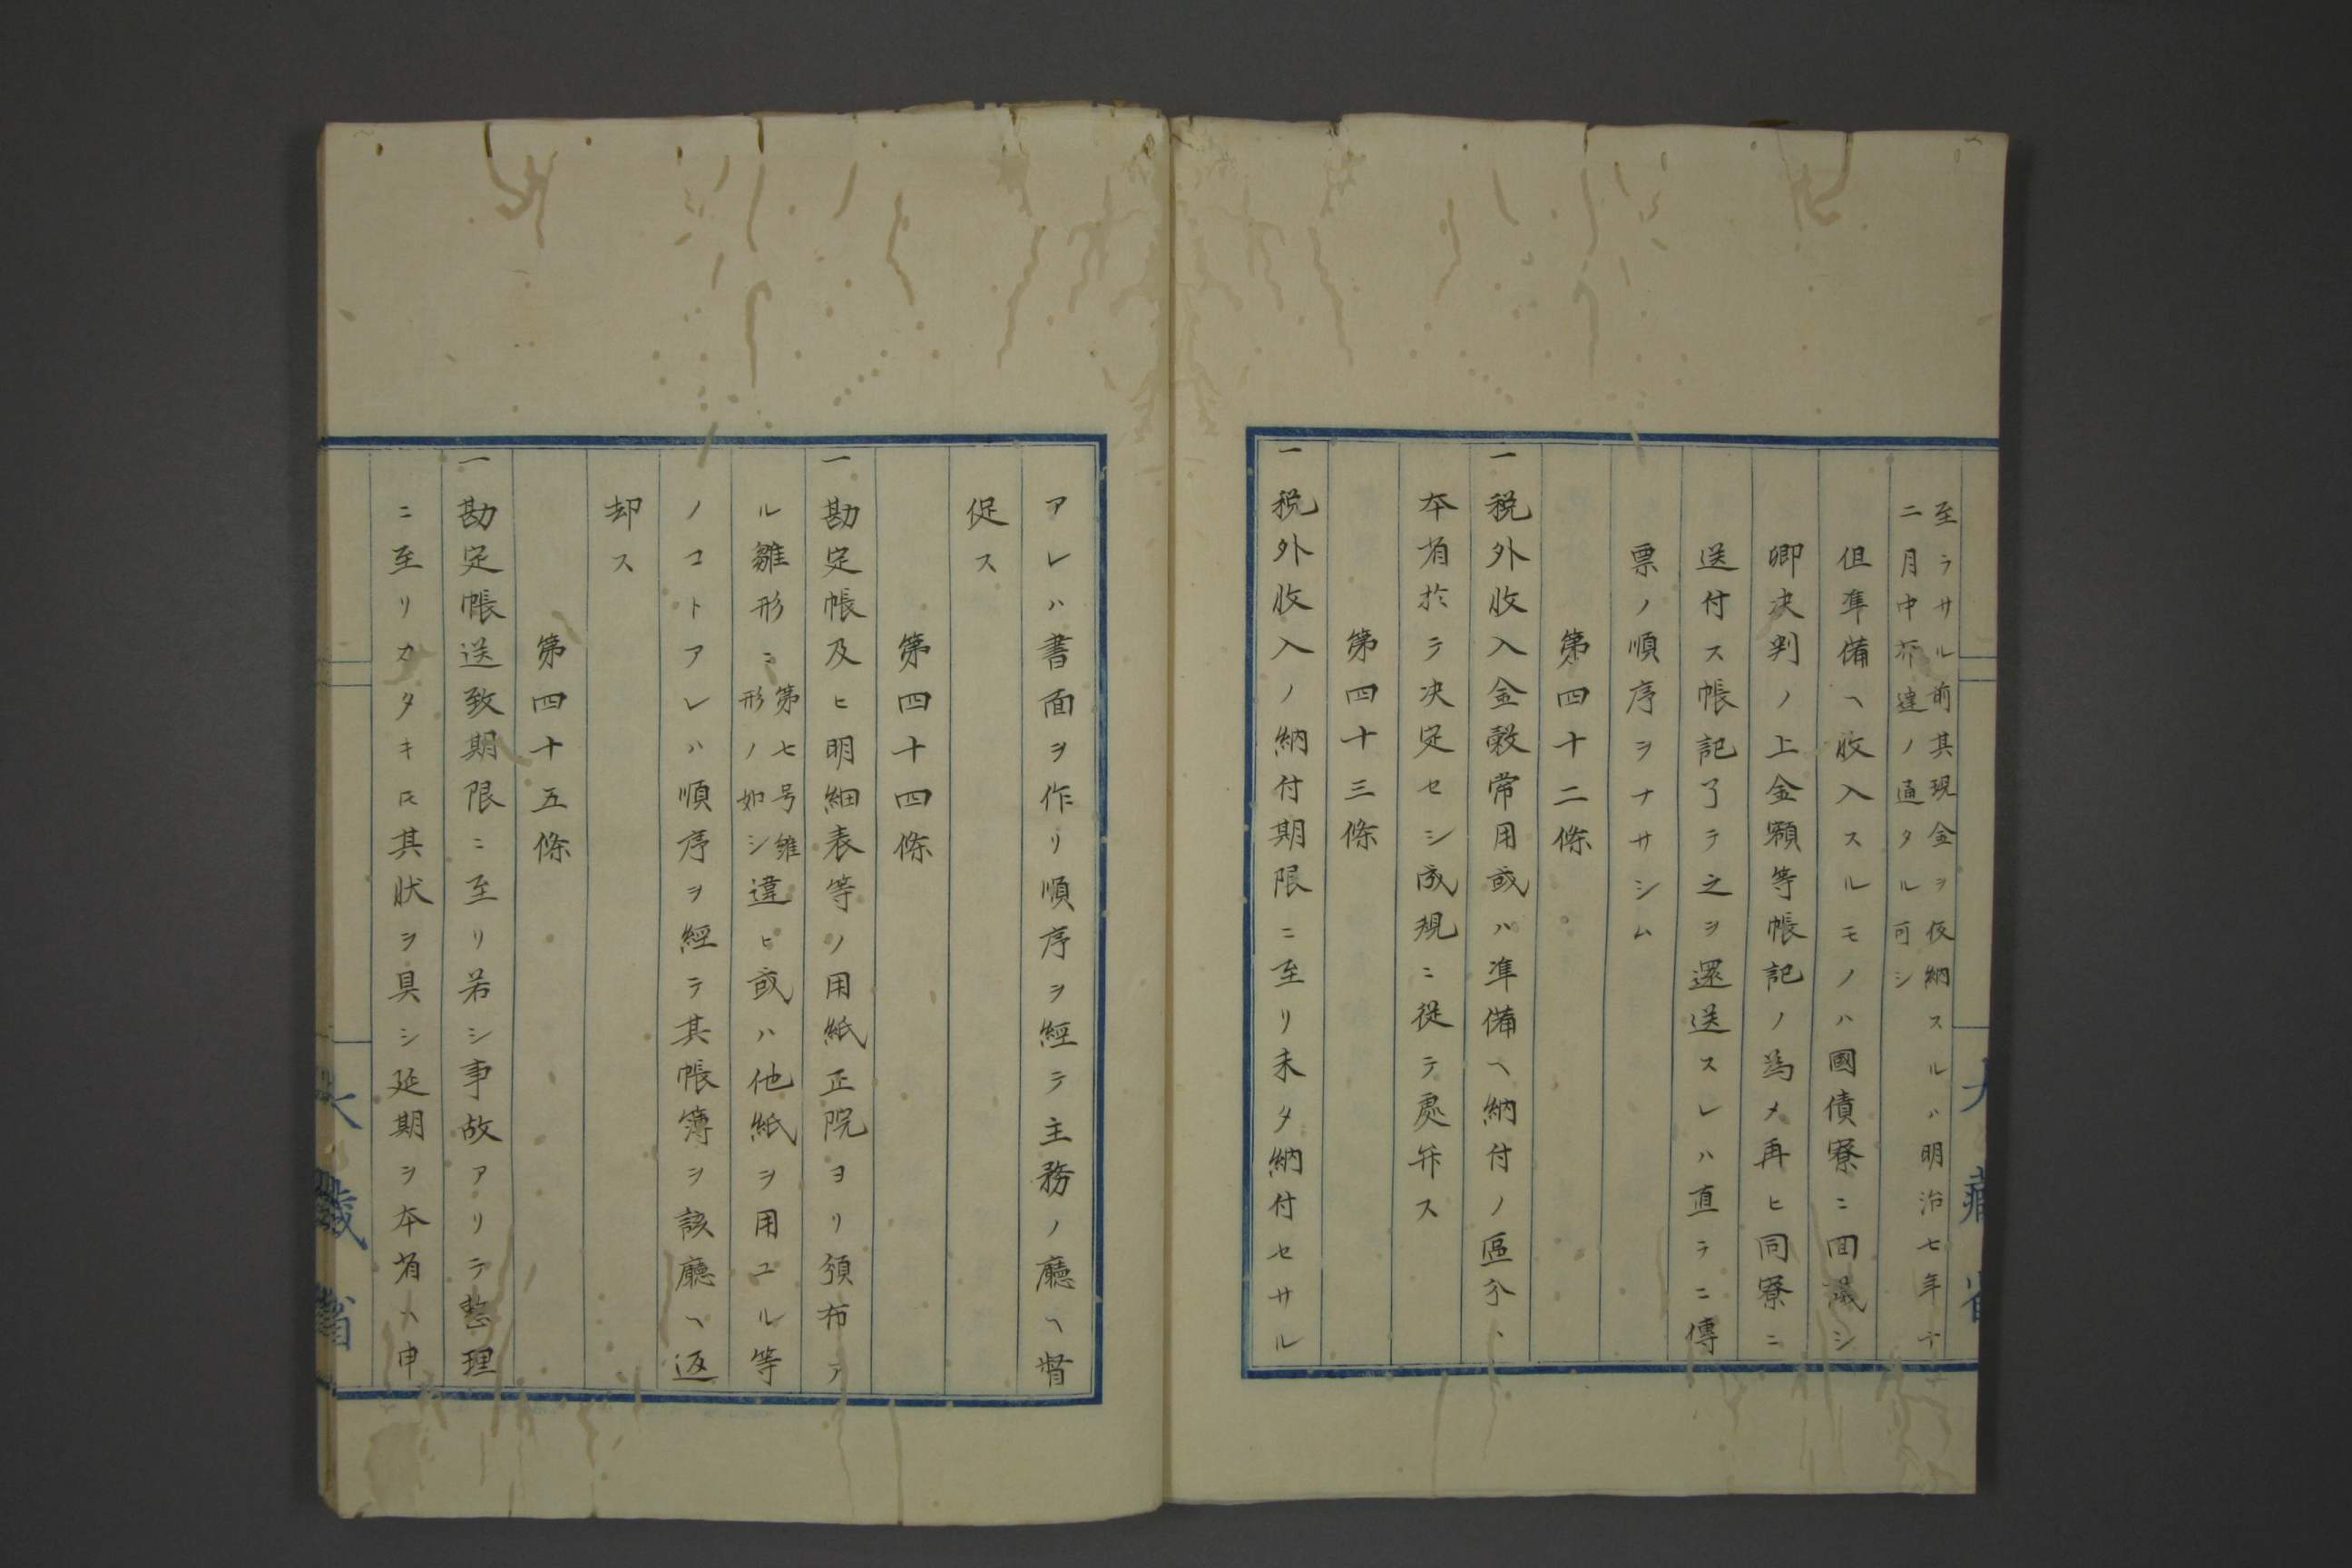 至ラサル前其現金ヲ仮納スルハ明治七年十
二月中布達ノ通タル可シ
但準備ヘ收入スルモノハ國債寮ニ回議シ
卿決判ノ上金額等帳記ノ為メ再ヒ同寮ニ
送付ス帳記了テ之ヲ還送スレハ直ラニ傳
票ノ順序ヲナサシム
第四十二條
一税外收入金穀常用或ハ準備ヘ納付ノ區分ハ
本省於テ决定セシ成規ニ從テ處弁ス
第四十三條
一税外收入ノ納付期限ニ至リ未タ納付セサル
大藏省
アレハ書面ヲ作リ順序ヲ經テ主務ノ廳ヘ督
促ス
第四十四條
一勘定帳及ヒ明細表等ノ用紙正院ヨリ頒布ア
ル雛形ニ第七号雛形ノ如シ違ヒ或ハ他紙ヲ用ユル等
ノコトアレハ順序ヲ經テ其帳簿ヲ該廳ヘ返
却ス
第四十五條
一勘定帳送致期限ニ至リ若シ事故アリテ整理
ニ至リカタキ𪜈其狀ヲ具シ延期ヲ本省ヘ申
大藏省